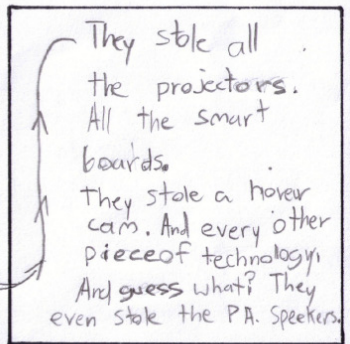 They stole all
the projectors.
All the smart
boards.
They stole a hover
cam. And every other
pieceof technology.
And guess what? They
even stole the P.A. Speekers.